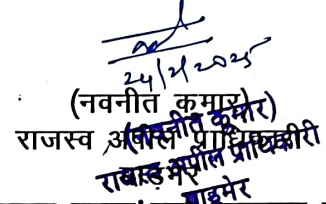 24/2/2025
(नवनीत कुमार)
राजस्व अपील प्राधिकारी
बाड़मेर
(नवनीत कुमार)
राजस्व अपील प्राधिकारी
बाड़मेर